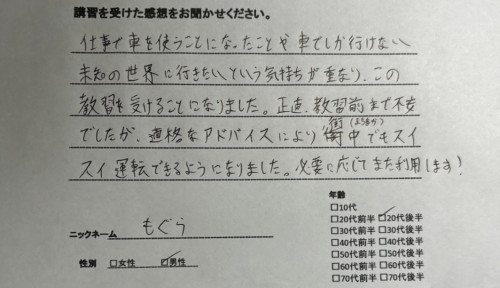 講習を受けた感想をお聞かせください。
仕事で車を使うことになったことや車でしか行けない
未知の世界に行きたいという気持ちが重なり、この
教習を受けることになりました。正直、教習前まで不安
でしたが、適格なアドバイスにより街中でもスイ
スイ運転できるようになりました。必要に応じてまた利用します!
ニックネーム もぐら
性別 □女性 ☑男性
年齢
□10代
□20代前半 ☑20代後半
□30代前半 □30代後半
□40代前半 □40代後半
□50代前半 □50代後半
□60代前半 □60代後半
□70代前半 □70代後半